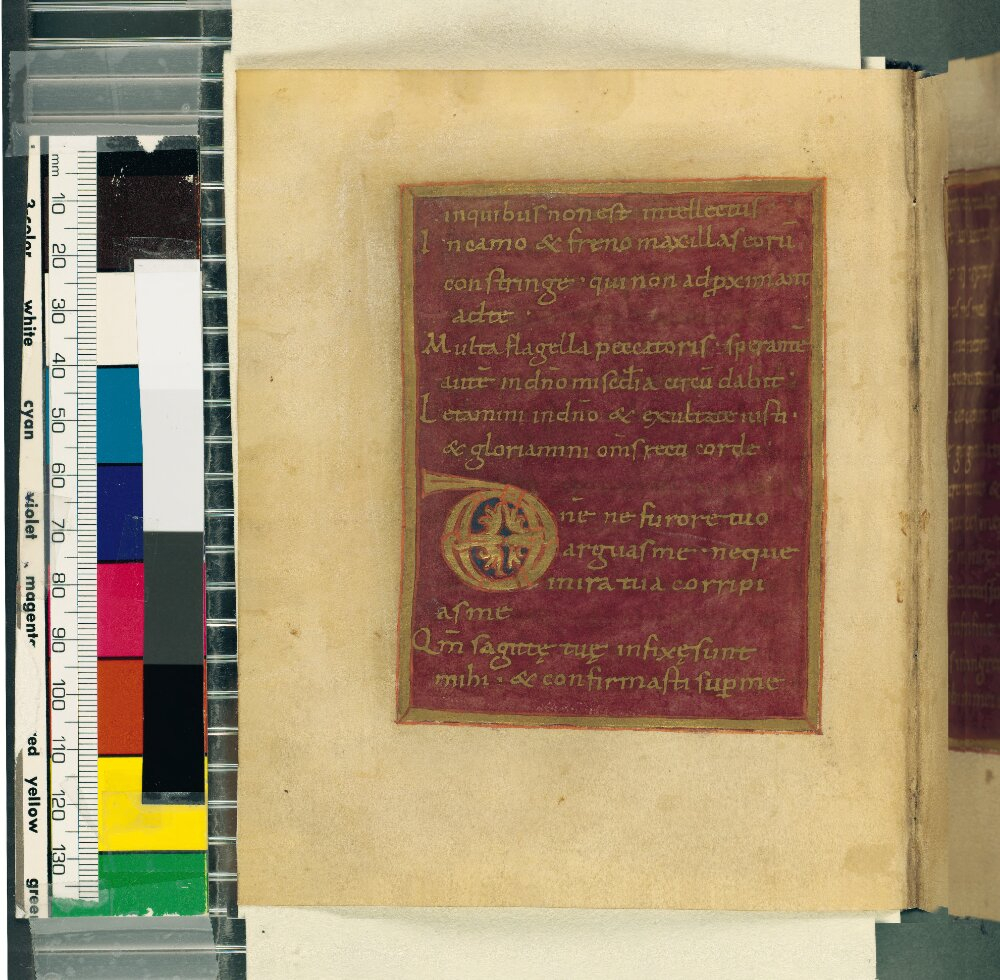 mm
10
20
30
40
50
60
70
80
90
100
110
120
130
white
cyan
violet
magent
ed
yellow
gree
inquibus non est intellectus
In camo & freno maxillas eorū
constringe · qui non adpximant
adte ·
Multa flagella peccatoris · sperantē
autē in dño misc̄dia circū dabit ·
Letamini in dño & exultate iusti ·
& gloriamini om̄s recti corde
Dnē ne furore tuo
arguas me · neque
inira tua corripi
as me
Qm̄ sagittę tuę infixę sunt
mihi · & confirmasti sup me